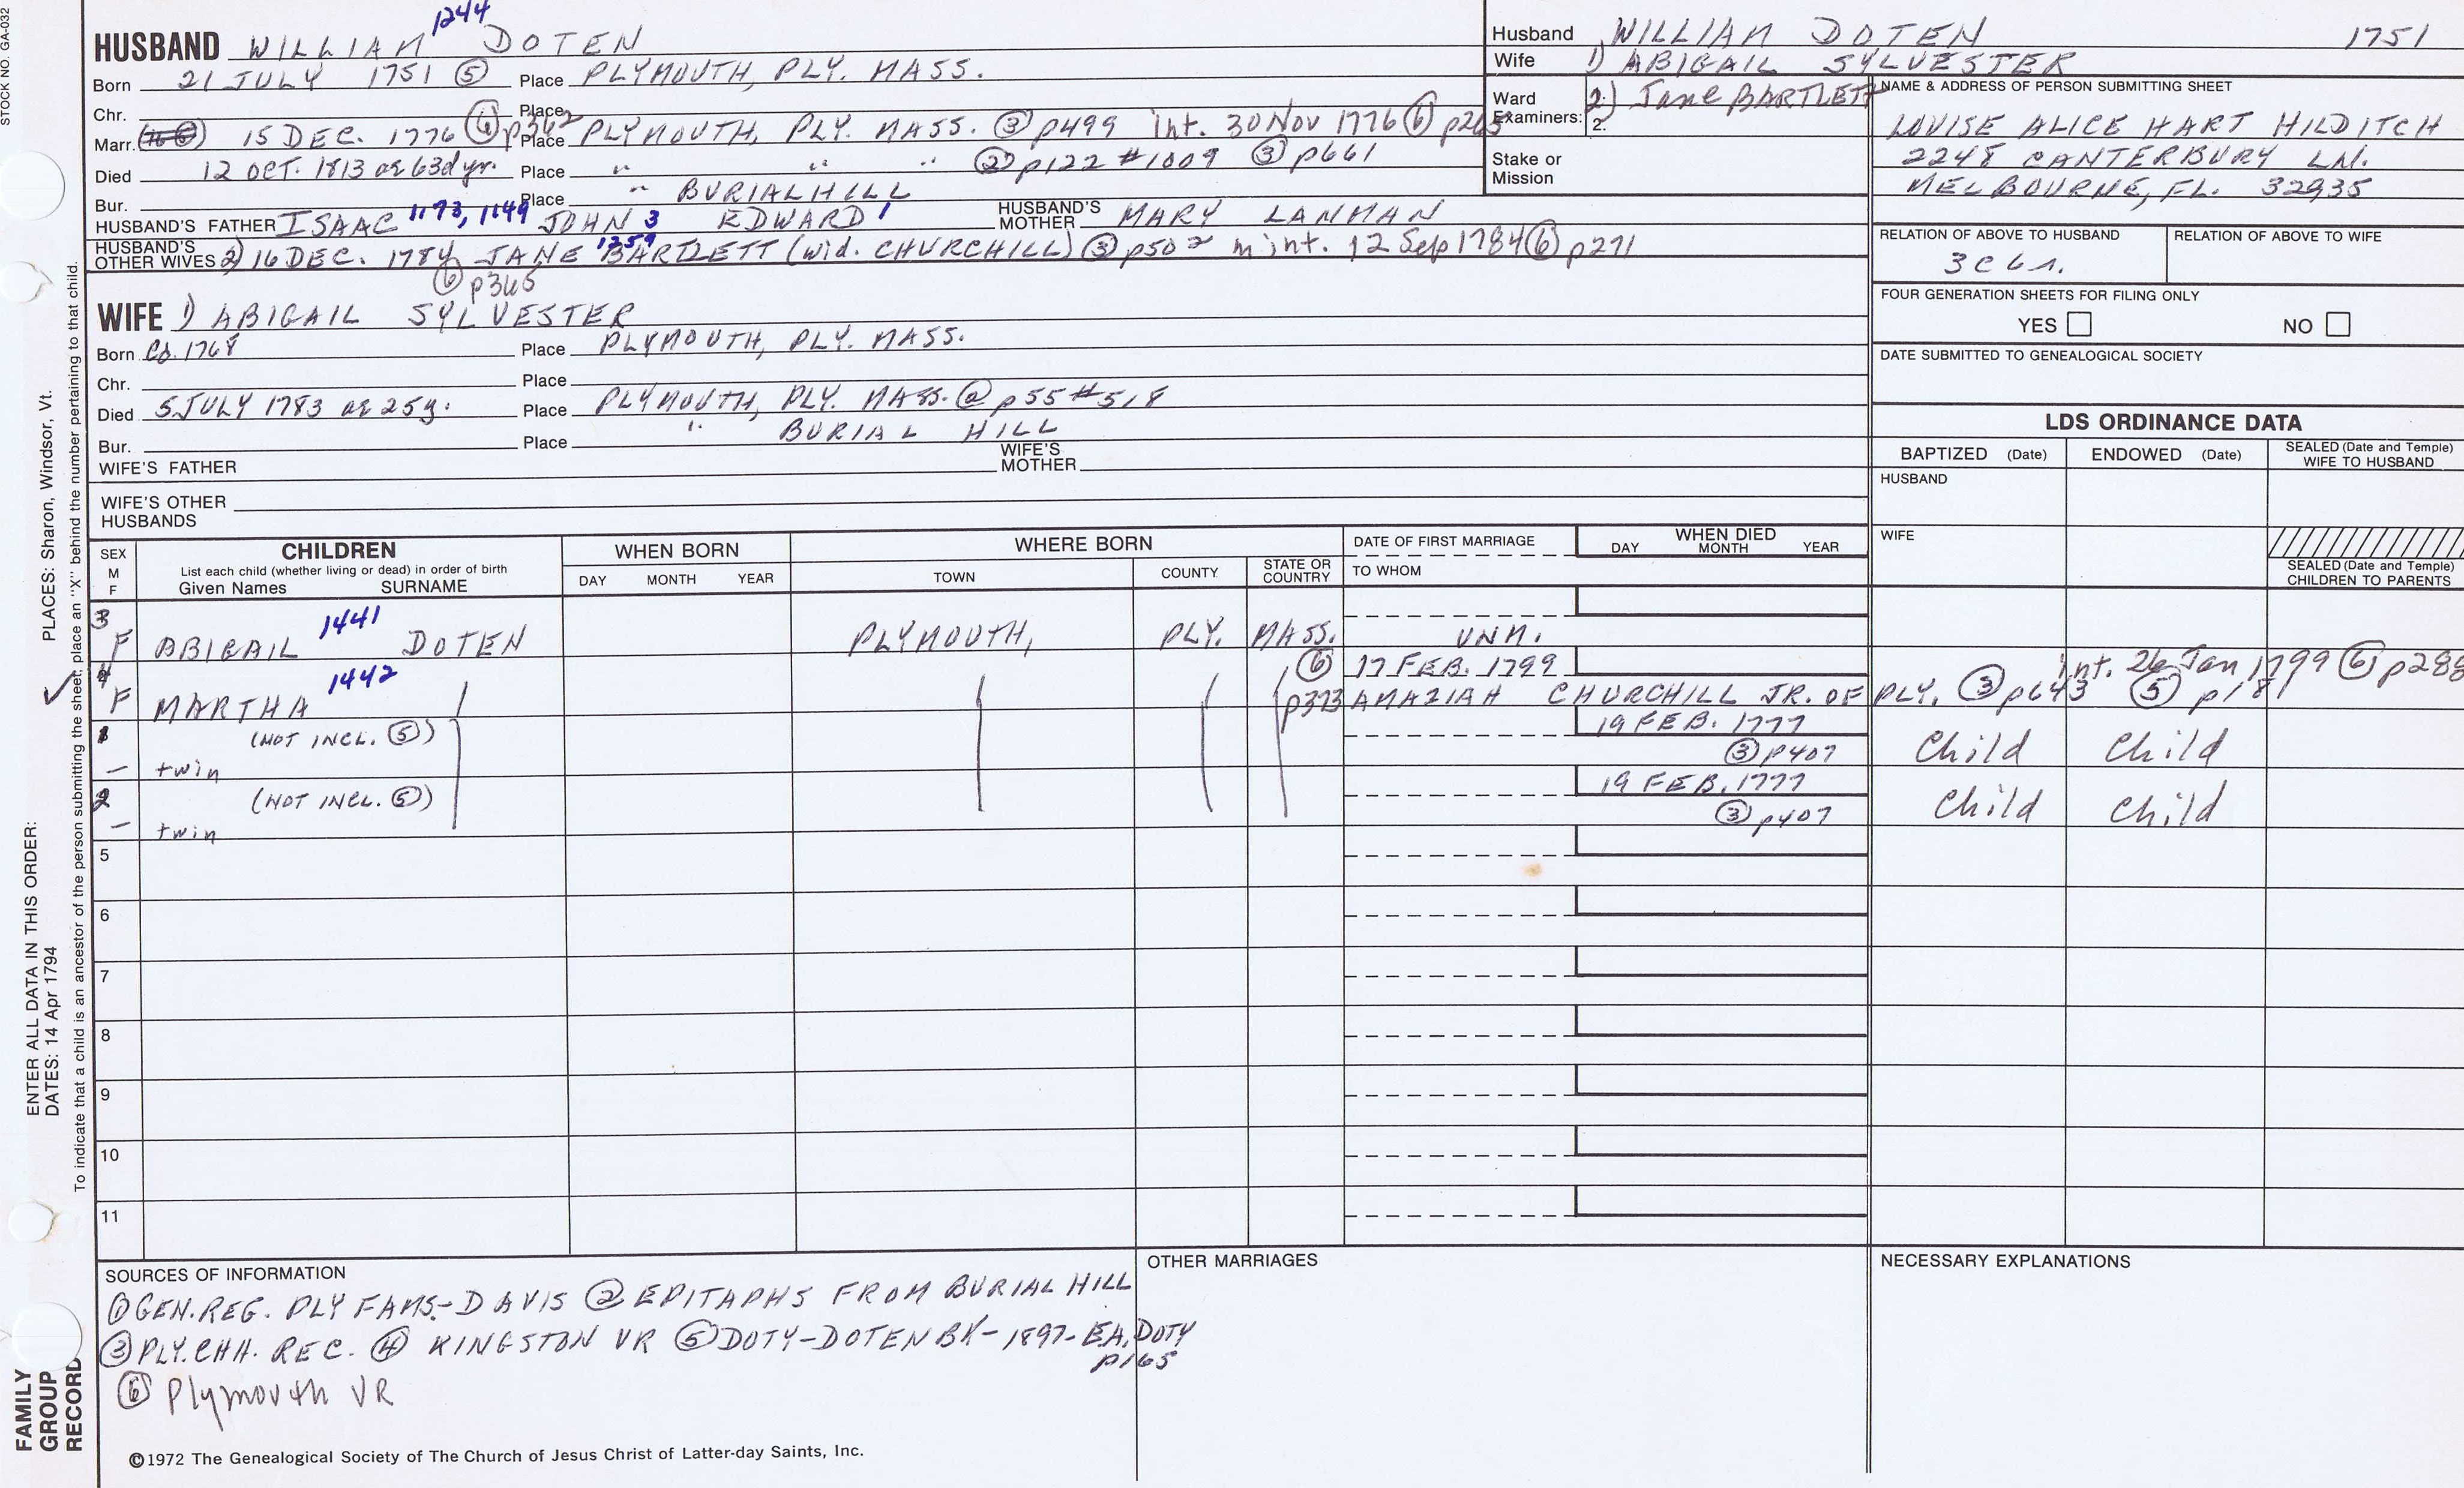 STOCK NO. GA-032
1244
HUSBAND WILLIAM DOTEN
Born 21 JULY 1751 ⑤ Place PLYMOUTH, PLY. MASS.
Chr. Place
Marr. 15 DEC. 1776 ⑥ p362 Place PLYMOUTH, PLY. MASS. ③ p499 int. 30 Nov 1776 ⑥ p265
Died 12 OCT. 1813 ae 63d yr. Place " " " ② p122 #1009 ③ p661
Bur. Place " BURIAL HILL
HUSBAND'S FATHER ISAAC 1173, 1149 JOHN 3 EDWARD 1 HUSBAND'S MOTHER MARY LANMAN
1259
HUSBAND'S OTHER WIVES 2) 16 DEC. 1784 JANE BARTLETT (wid. CHURCHILL) ③ p502 m int. 12 Sep 1784 ⑥ p271
⑥ p365
WIFE 1) ABIGAIL SYLVESTER
Born Ca. 1768 Place PLYMOUTH, PLY. MASS.
Chr. Place
Died 5 JULY 1783 ae 25y. Place PLYMOUTH, PLY. MASS. ② p55 #518
Bur. Place " BURIAL HILL
WIFE'S FATHER WIFE'S MOTHER
WIFE'S OTHER HUSBANDS
Husband WILLIAM DOTEN 1751
Wife 1) ABIGAIL SYLVESTER
Ward Examiners: 2) Jane BARTLETT
2.
Stake or Mission
NAME & ADDRESS OF PERSON SUBMITTING SHEET
LOUISE ALICE HART HILDITCH
2248 CANTERBURY LN.
MELBOURNE, FL. 32935
RELATION OF ABOVE TO HUSBAND RELATION OF ABOVE TO WIFE
3c6r.
FOUR GENERATION SHEETS FOR FILING ONLY
YES NO
DATE SUBMITTED TO GENEALOGICAL SOCIETY
LDS ORDINANCE DATA
BAPTIZED (Date) ENDOWED (Date) SEALED (Date and Temple) WIFE TO HUSBAND
HUSBAND
WIFE
SEALED (Date and Temple) CHILDREN TO PARENTS
SEX M F CHILDREN List each child (whether living or dead) in order of birth Given Names SURNAME
WHEN BORN DAY MONTH YEAR
WHERE BORN TOWN COUNTY STATE OR COUNTRY
DATE OF FIRST MARRIAGE TO WHOM
WHEN DIED DAY MONTH YEAR
3 F ABIGAIL 1441 DOTEN PLYMOUTH, PLY. MASS. UNM.
4 F MARTHA 1442 ⑥ p373 17 FEB. 1799 int. 26 Jan 1799 ⑥ p288
AMAZIAH CHURCHILL JR. OF PLY. ③ p643 ⑤ p18
1 (NOT INCL. ⑤) 19 FEB. 1777
— twin ③ p407 Child Child
2 (NOT INCL. ⑤) 19 FEB. 1777
— twin ③ p407 Child Child
5
6
7
8
9
10
11
SOURCES OF INFORMATION
① GEN. REG. PLY FAMS.-DAVIS ② EPITAPHS FROM BURIAL HILL
③ PLY. CHH. REC. ④ KINGSTON VR ⑤ DOTY-DOTEN BK-1897-EA, DOTY
p165
⑥ Plymouth VR
OTHER MARRIAGES
NECESSARY EXPLANATIONS
©1972 The Genealogical Society of The Church of Jesus Christ of Latter-day Saints, Inc.
FAMILY GROUP RECORD
ENTER ALL DATA IN THIS ORDER:
DATES: 14 Apr 1794
PLACES: Sharon, Windsor, Vt.
To indicate that a child is an ancestor of the person submitting the sheet, place an "X" behind the number pertaining to that child.